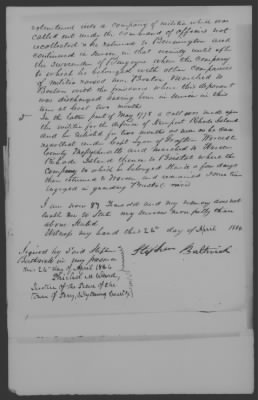 volunteered into a company of militia which was
called out under the command of officers not
recollected & he returned to Bennington and
continued in service in that vicinity until after
the surrender of Burgoyne where the company
to which he belonged with other companies
of militia marched to
Boston with the prisoners where this deponent
was discharged having been in service in this
tour at least two months
5 In the latter part of May 1778 a call was made upon
the militia for the defence of Newport Rhode Island
and he enlisted for two months as near as he can
recollect under Capt of Grafton Worcester
County Massachusetts and marched to Warren
Rhode Island thence to Bristol where the
Company to which he belonged a few days
then returned to Warren and remained some time
engaged in guarding
I am now 87 years old and my memory does not
enable me to state my services more fully than
above stated
Witness my hand this 26th day of April 1844
Signed by said Stephen
in my presence
this 26th day of April 1844
Justice of the Peace of the
Town of Perry, Wyoming County
Stephen